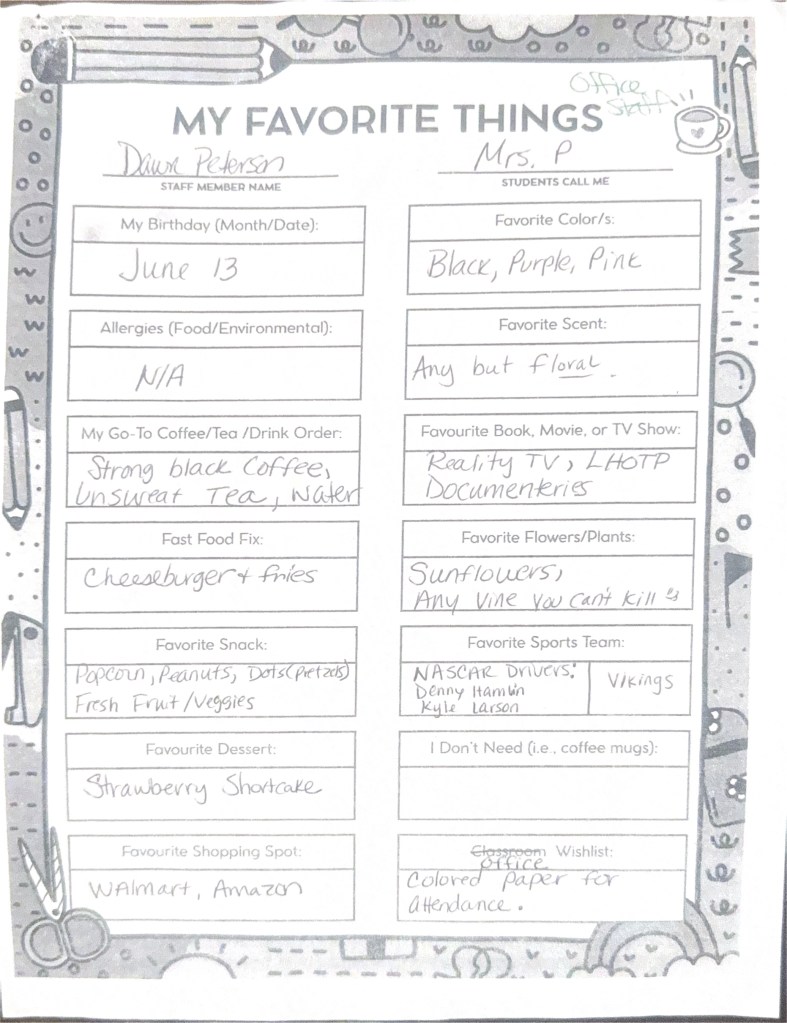 Office
Staff
MY FAVORITE THINGS
Dawn Peterson
STAFF MEMBER NAME
Mrs. P
STUDENTS CALL ME
My Birthday (Month/Date):
June 13
Favorite Color/s:
Black, Purple, Pink
Allergies (Food/Environmental):
N/A
Favorite Scent:
Any but floral.
My Go-To Coffee/Tea /Drink Order:
Strong black Coffee,
Unsweat Tea, Water
Favourite Book, Movie, or TV Show:
Reality TV, LHOTP
Documenteries
Fast Food Fix:
Cheeseburger + fries
Favorite Flowers/Plants:
Sunflowers,
Any vine you can't kill
Favorite Snack:
Popcorn, Peanuts, Dots (pretzels)
Fresh Fruit/Veggies
Favorite Sports Team:
NASCAR Drivers:
Denny Hamlin
Kyle Larson
Vikings
Favourite Dessert:
Strawberry Shortcake
I Don't Need (i.e., coffee mugs):
Favourite Shopping Spot:
Walmart, Amazon
Classroom Wishlist:
office
Colored paper for
attendance.